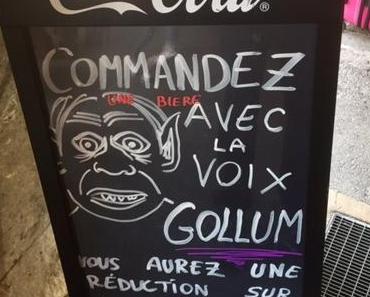 Cola®
COMMANDEZ
UNE BIERE
AVEC
LA
VOIX
GOLLUM
VOUS AUREZ UNE
RÉDUCTION SUR